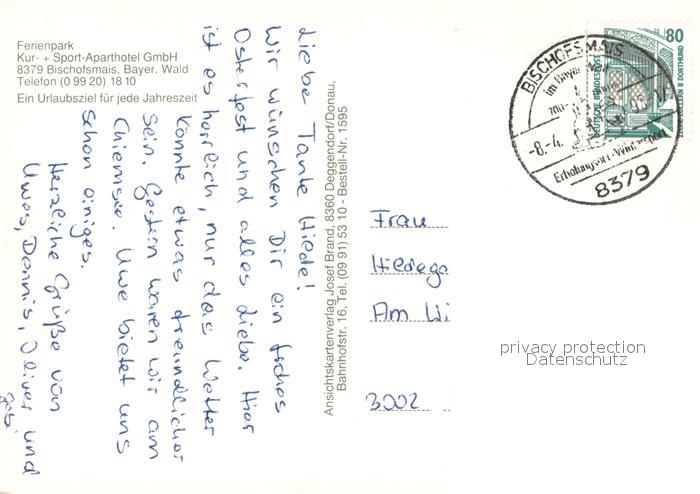 Ferienpark
Kur- + Sport-Aparthotel GmbH
8379 Bischofsmais, Bayer. Wald
Telefon (0 99 20) 18 10
Ein Urlaubsziel für jede Jahreszeit
Liebe Tante Hilde!
Wir wünschen Dir ein frohes
Osterfest und alles Liebe. Hier
ist es herrlich, nur das Wetter
könnte etwas freundlicher
sein. Gestern waren wir am
Chiemsee. Uwe bietet uns
schon einiges.
Herzliche Grüße von
Uwes, Dennis, Oliver und
Ansichtskartenverlag Josef Brand, 8360 Deggendorf/Donau,
Bahnhofstr. 16, Tel. (09 91) 53 10 - Bestell-Nr. 1595
BISCHOFSMAIS
im Bayer. Wald
700-
-8.-4.
Erholungsort-Wintersport
8379
80
DEUTSCHE BUNDESPOST
ZECHE ZOLLERN II DORTMUND
Frau
Hildega
Am Wi
3002
privacy protection
Datenschutz